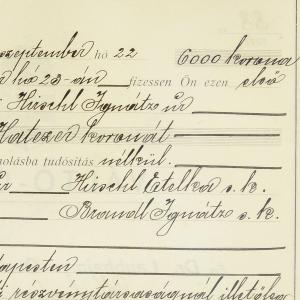 szeptember hó 22 6000 korona
r hó 28-án fizessen Ön ezen első
Hirschl Ignátz úr
Hatezer koronát
molásba tudósítás nélkül.
úr Hirschl Etelka s. k.
Brandl Ignátz s. k.
dapesten
i részvénytársaságnál illetőleg